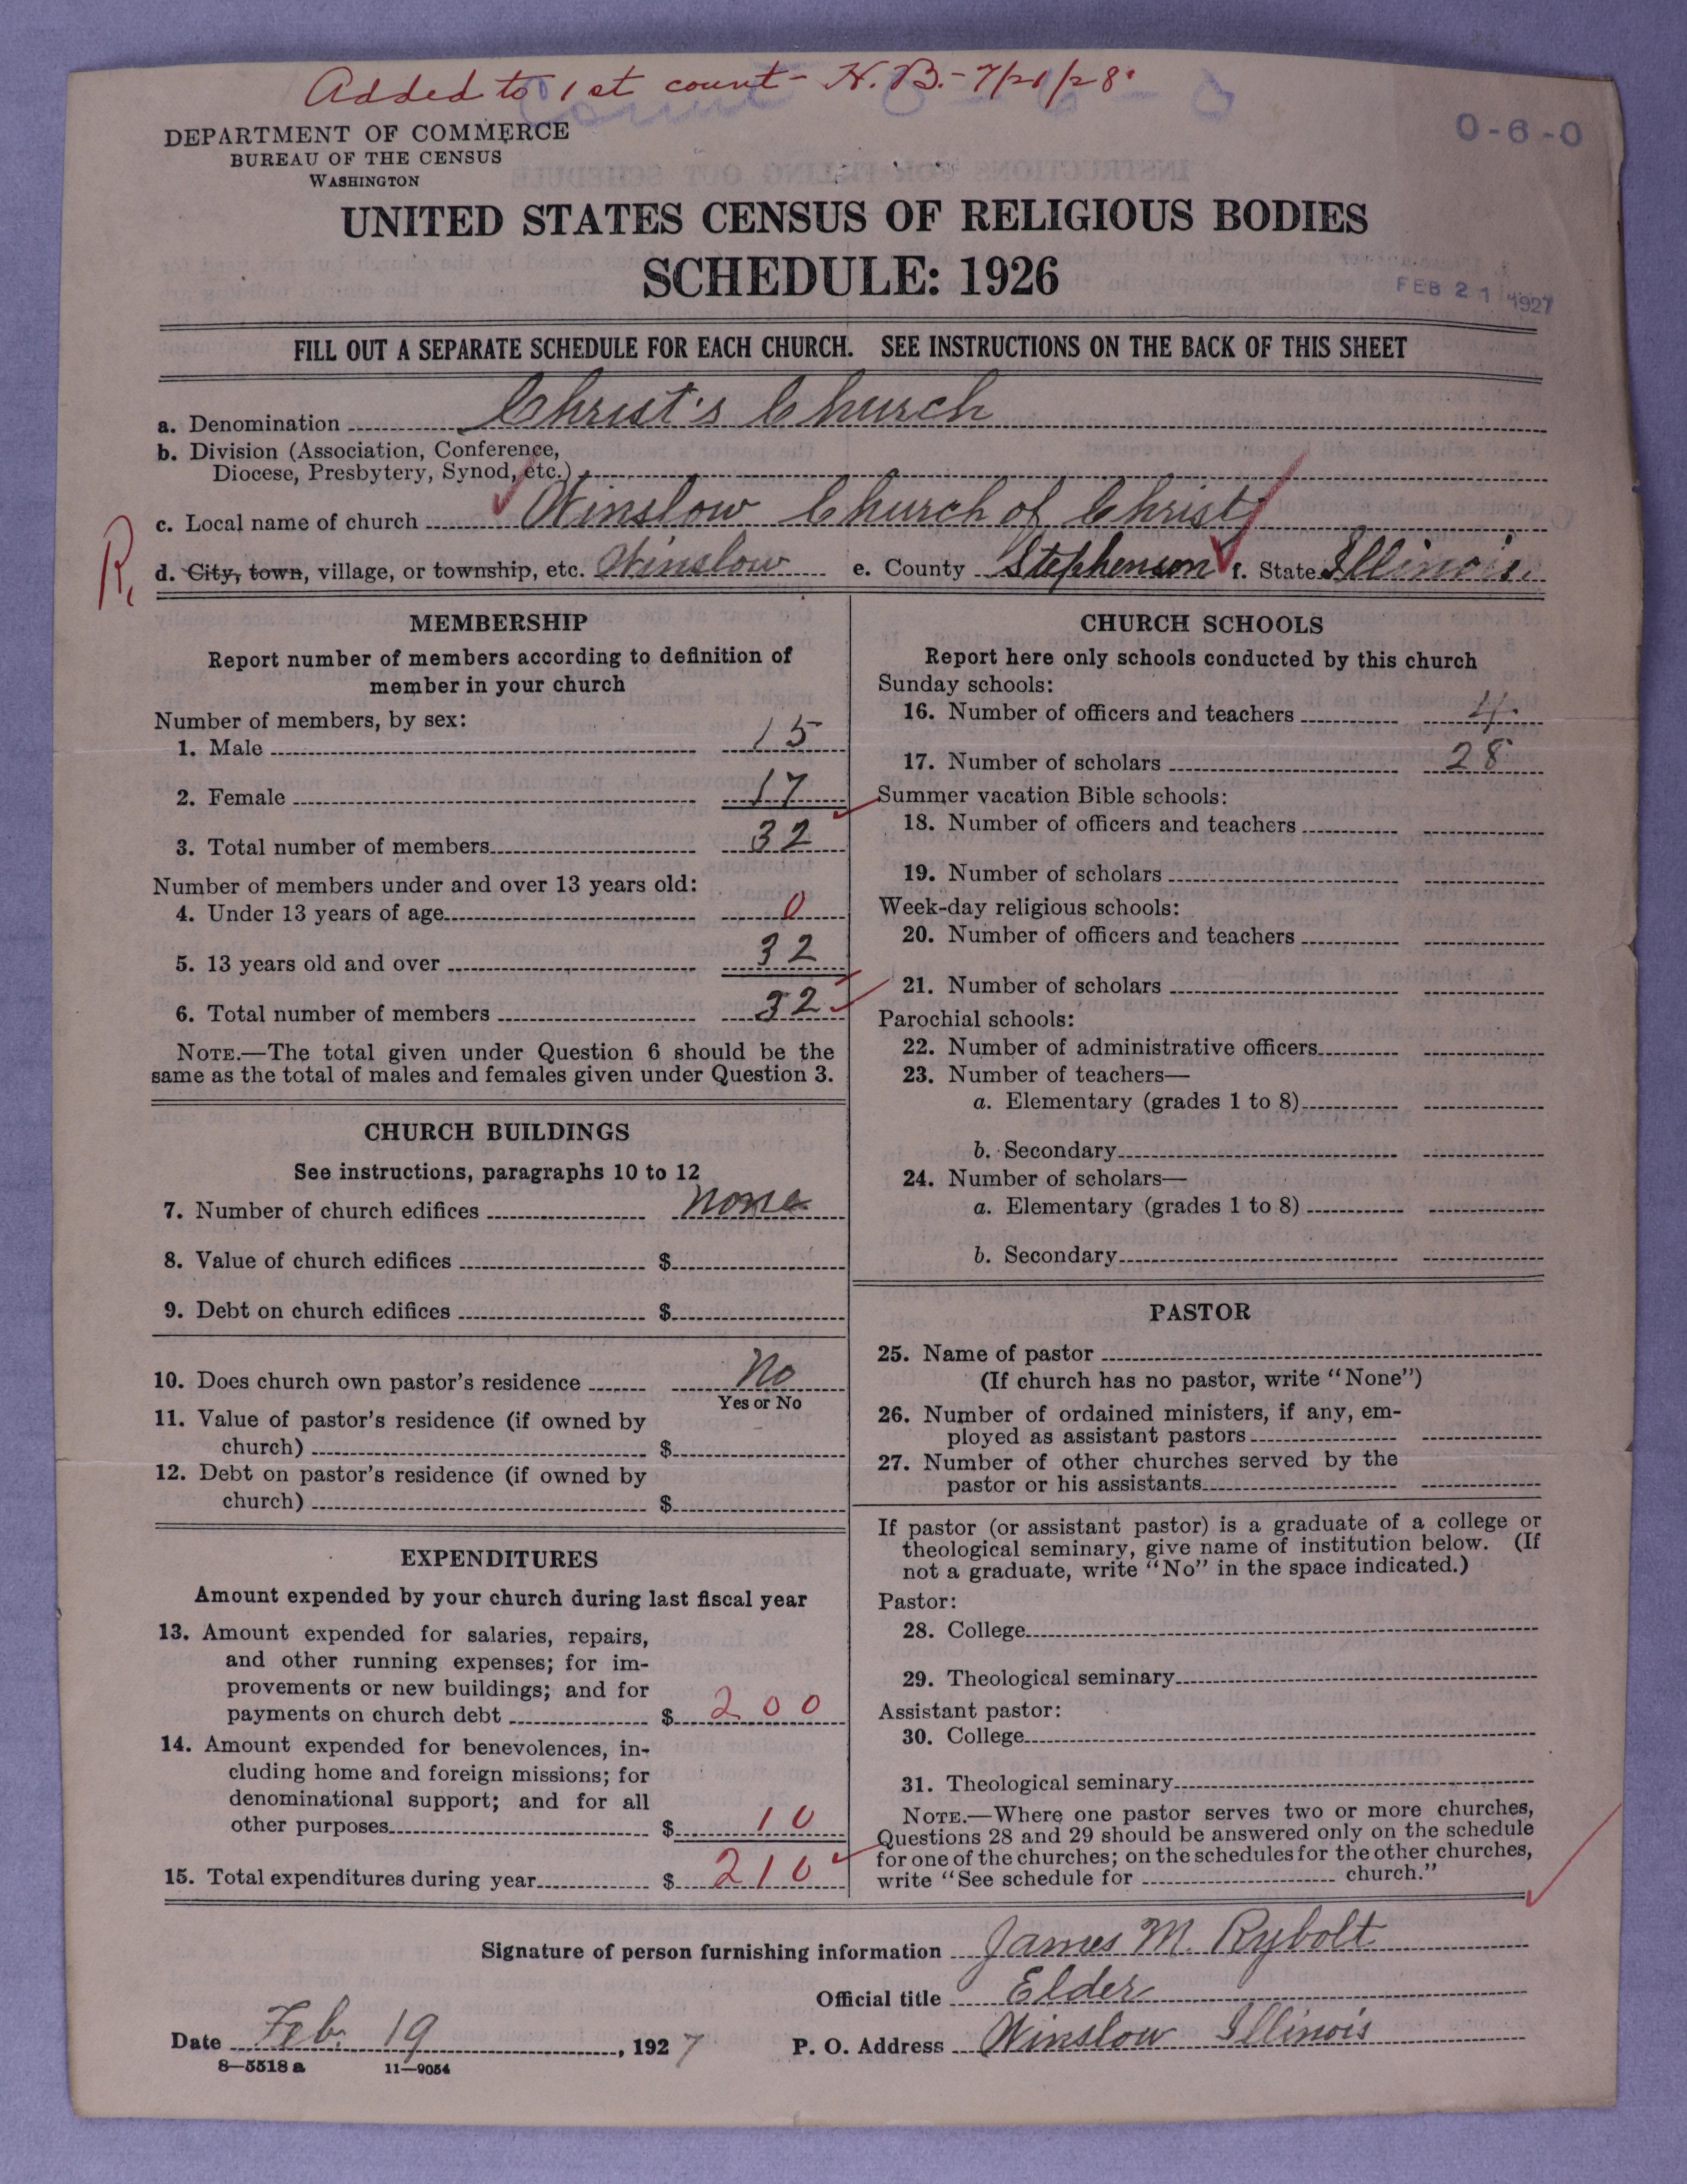 Added to 1st count - H.B. - 7/21/28
DEPARTMENT OF COMMERCE
BUREAU OF THE CENSUS
WASHINGTON
0-6-0
UNITED STATES CENSUS OF RELIGIOUS BODIES
SCHEDULE: 1926
FEB 21 1927
FILL OUT A SEPARATE SCHEDULE FOR EACH CHURCH. SEE INSTRUCTIONS ON THE BACK OF THIS SHEET
a. Denomination Christ's Church
b. Division (Association, Conference,
Diocese, Presbytery, Synod, etc.)
c. Local name of church Winslow Church of Christ
R,
d. City, town, village, or township, etc. Winslow e. County Stephenson f. State Illinois.
MEMBERSHIP
Report number of members according to definition of
member in your church
Number of members, by sex:
1. Male 15
2. Female 17
3. Total number of members 32
Number of members under and over 13 years old:
4. Under 13 years of age 0
5. 13 years old and over 32
6. Total number of members 32
NOTE.—The total given under Question 6 should be the
same as the total of males and females given under Question 3.
CHURCH BUILDINGS
See instructions, paragraphs 10 to 12
7. Number of church edifices none
8. Value of church edifices $
9. Debt on church edifices $
10. Does church own pastor's residence No
Yes or No
11. Value of pastor's residence (if owned by
church) $
12. Debt on pastor's residence (if owned by
church) $
EXPENDITURES
Amount expended by your church during last fiscal year
13. Amount expended for salaries, repairs,
and other running expenses; for im-
provements or new buildings; and for
payments on church debt $ 200
14. Amount expended for benevolences, in-
cluding home and foreign missions; for
denominational support; and for all
other purposes $ 10
15. Total expenditures during year $ 210
CHURCH SCHOOLS
Report here only schools conducted by this church
Sunday schools:
16. Number of officers and teachers 4.
17. Number of scholars 28
Summer vacation Bible schools:
18. Number of officers and teachers
19. Number of scholars
Week-day religious schools:
20. Number of officers and teachers
21. Number of scholars
Parochial schools:
22. Number of administrative officers
23. Number of teachers—
a. Elementary (grades 1 to 8)
b. Secondary
24. Number of scholars—
a. Elementary (grades 1 to 8)
b. Secondary
PASTOR
25. Name of pastor
(If church has no pastor, write "None")
26. Number of ordained ministers, if any, em-
ployed as assistant pastors
27. Number of other churches served by the
pastor or his assistants
If pastor (or assistant pastor) is a graduate of a college or
theological seminary, give name of institution below. (If
not a graduate, write "No" in the space indicated.)
Pastor:
28. College
29. Theological seminary
Assistant pastor:
30. College
31. Theological seminary
NOTE.—Where one pastor serves two or more churches,
Questions 28 and 29 should be answered only on the schedule
for one of the churches; on the schedules for the other churches,
write "See schedule for church."
Signature of person furnishing information James M. Rybolt
Official title Elder
Date Feb. 19, 1927 P. O. Address Winslow Illinois
8—5518 a 11—9054